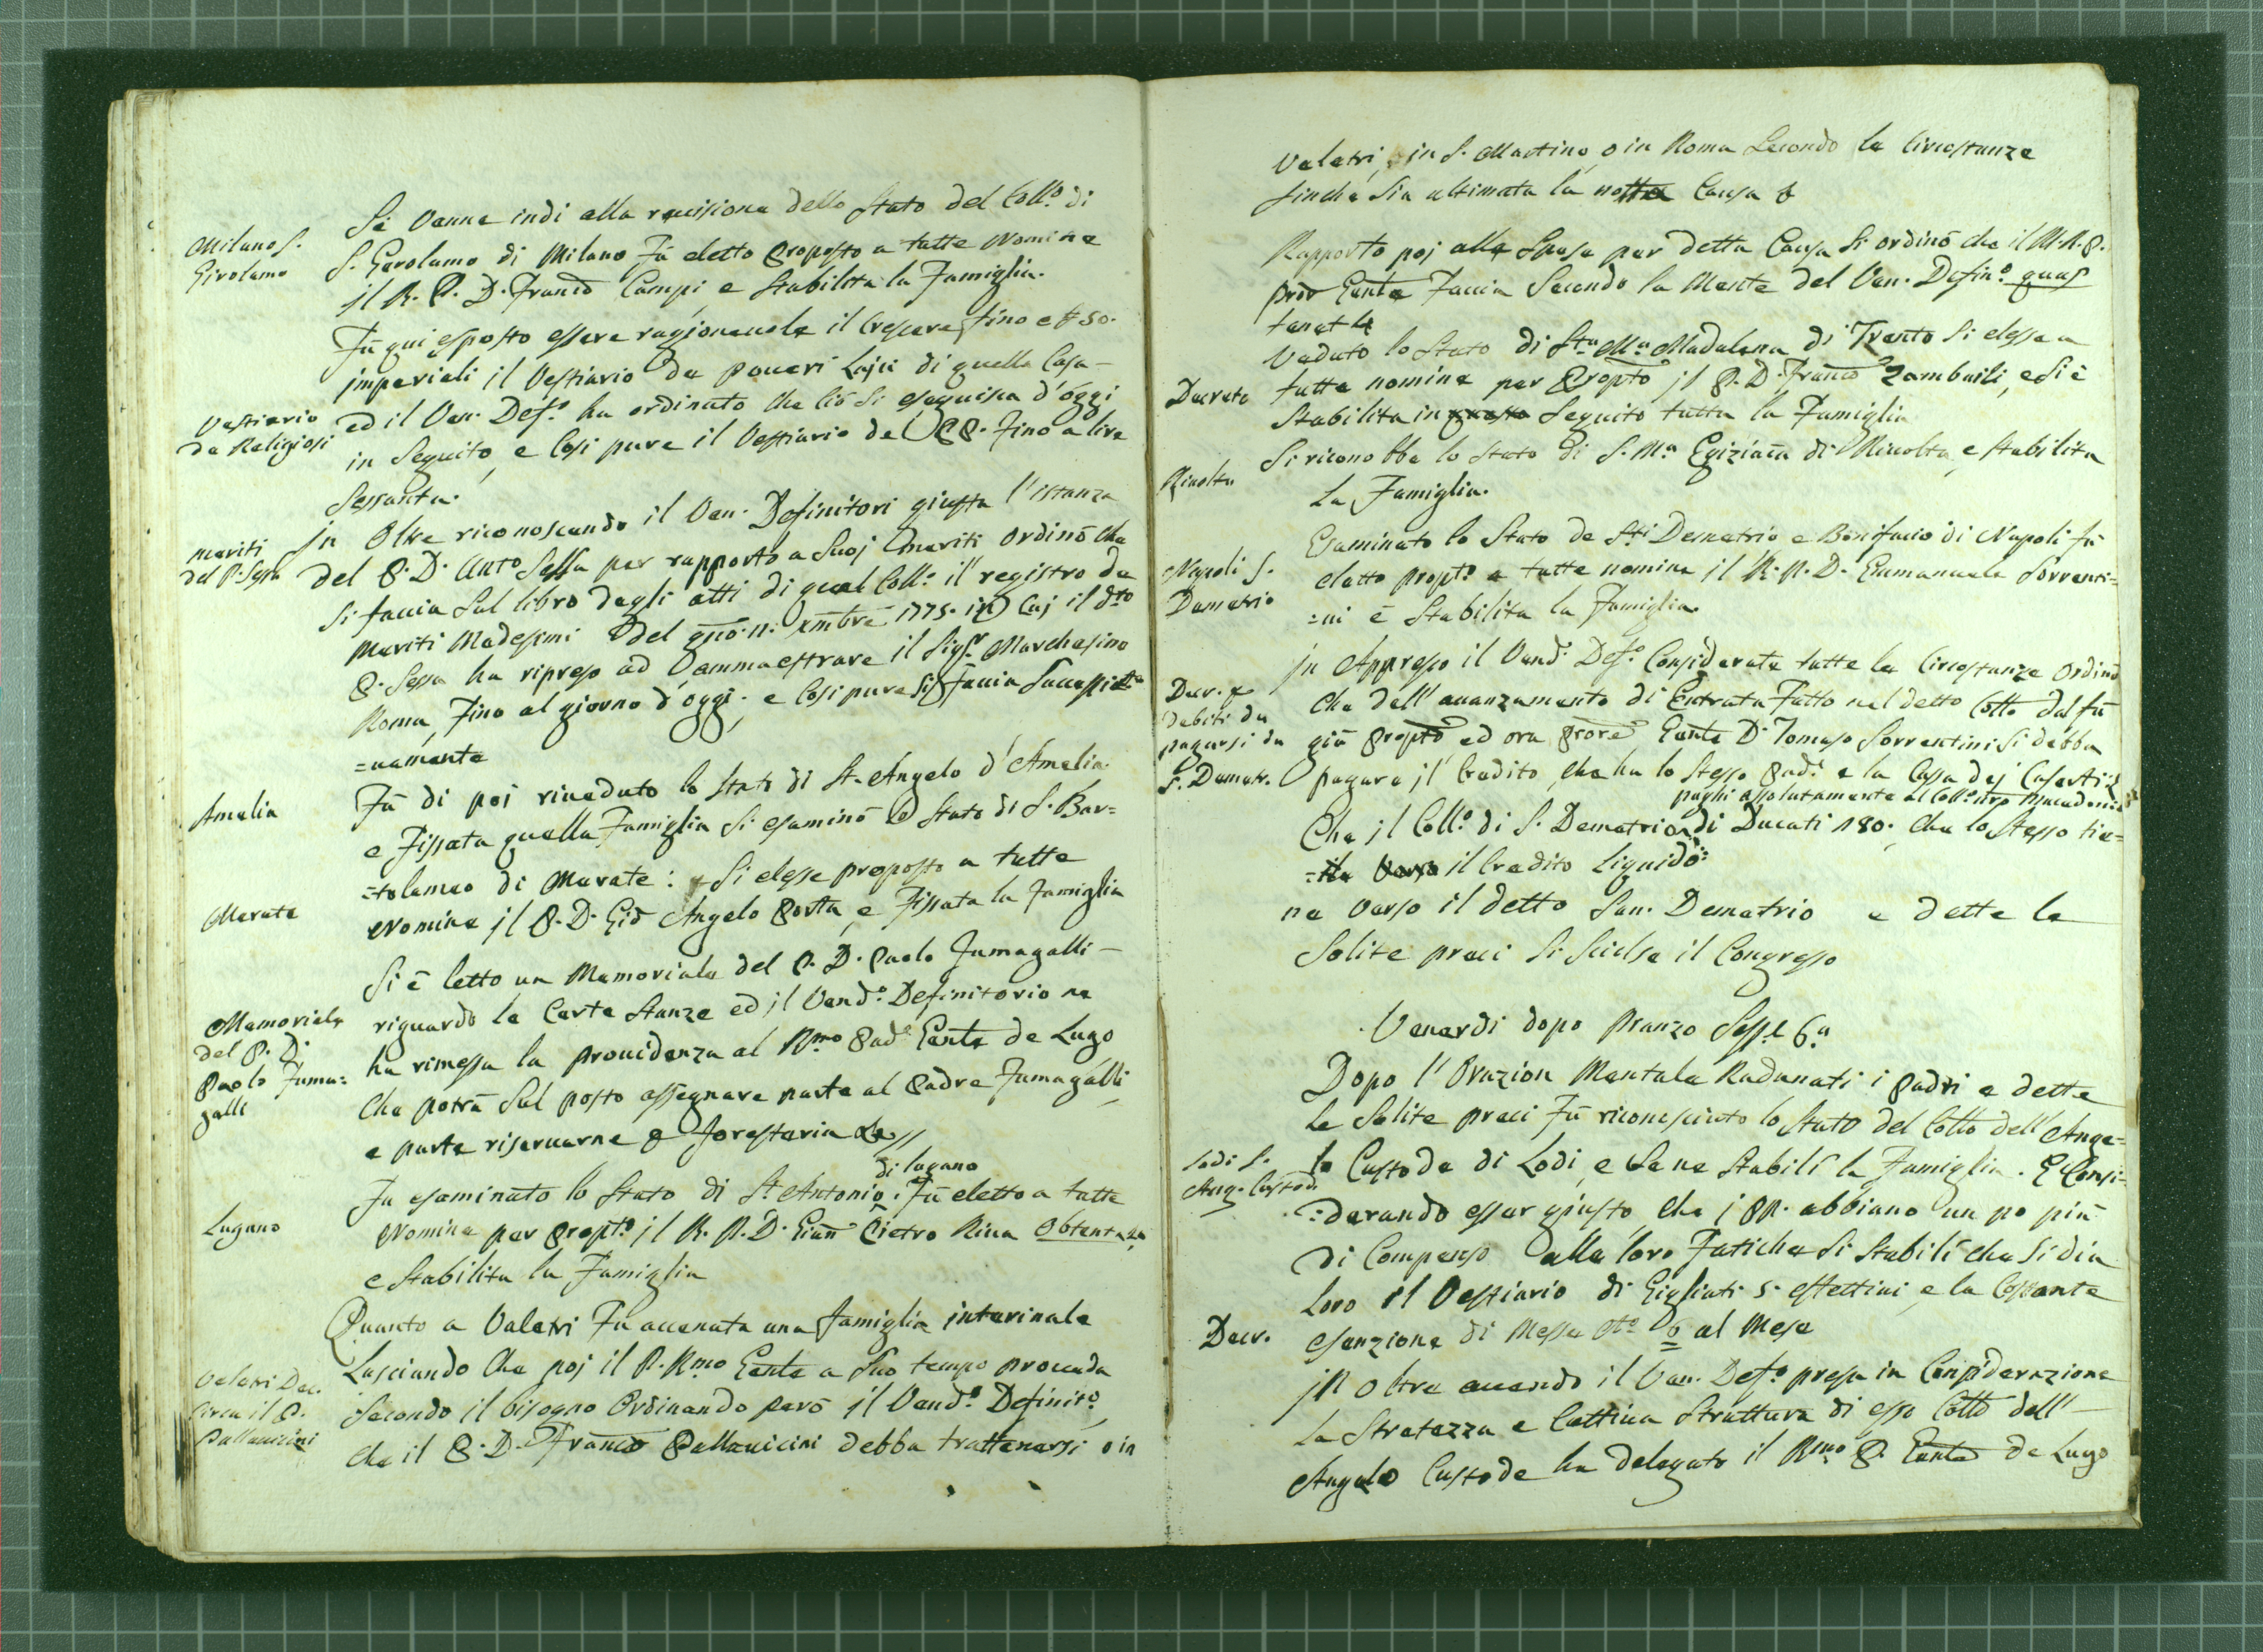 Milano S.
Girolamo
Si venne indi alla revisione dello Stato del Coll.o di
S. Gerolamo di Milano Fù eletto Proposto a tutte Nomine
jl R. P. D. Franco Campi, e Stabilita la Famiglia.
Fù qui esposto essere ragionevole il crescere fino a # 50.
imperiali il Vestiario de poveri Laici di quella Casa –
Vestiario
de Religiosi
ed il Ven. Def.o ha ordinato che ciò si eseguisca d'oggi
in Seguito, e Così pure il Vestiario de PP. Fino a lire
Sessanta.
meriti
del P. Sessa
jn Oltre riconoscendo il Ven. Definitori giusta l'istanza
del P. D. Anto Sessa per rapporto a Suoj Emeriti ordinò che
si faccia Sul libro degli atti di quel Coll.o il registro de
Meriti Medesimi del gno. 11. Xmbre 1775. in Cuj il dto
P. Sessa ha ripreso ad ammaestrare il Sigr. Marchesino
Roma, Fino al giorno d'oggi, e Così pure si Faccia Successi
=vamente
Amelia
Fù di poi riveduto lo Stato di St. Angelo d'Amelia
e Fissata quella Famiglia Si esaminò lo Stato di S. Bar=
Merate
=tolameo di Merate: Si elesse proposto a tutte
Nomine jl P. D. Gio Angelo Porta, e Fissata la Famiglia
Memoriale
del P. D.
Paolo Fuma=
galli
Si è letto un Memoriale del P. D. Paolo Fumagalli –
riguardo le Certe Stanze ed jl Vend.o Definitorio ne
ha rimessa la providenza al Rmo Pad.e Gente de Lugo
Che potrà Sul posto assegnare parte al Padre Fumagalli,
e parte riservarne p Foresteria
di lugano
Lugano
Fu esaminato lo Stato di St. Antonio. Fù eletto a tutte
Nomine per Propt.o jl R. P. D. Gian Pietro Riva Obtenta
e Stabilita la Famiglia
Quanto a Veletri Fu accenata una famiglia interinale
Veletri Dec.
Circa il P.
Pallavicini
Lasciando Che poj il P. Rmo Gente a Suo tempo proveda
Secondo il bisogno Ordinando però jl Vend.o Definit.o,
Che il P. D. Franco Pallavicini debba trattenersi o in
Veletri, in S. Martino, o in Roma Secondo le Circostanze
finchè Sia ultimata la nostra Causa
Rapporto poj alle Spese per detta Causa Si ordinò che il M. R. P.
Pror Gente Faccia Secondo la Mente del Ven. Defin.o quas
tenet
Decreto
Veduto lo Stato di Sta Ma Madalena di Trento Si elesse a
tutte nomine per Propto jl P. D. Franco Zambaiti, e Si è
Stabilita in questo Seguito tutta la Famiglia
Rivolta
Si riconobbe lo Stato di S. Ma Egiziaca di Rivolta, e Stabilita
La Famiglia.
Napoli S.
Demetrio
Esaminato lo Stato de Sti Demetrio e Bonifacio di Napoli fù
eletto propt.o a tutte nomine jl R. P. D. Emmanuele Sorrenti=
=ni è Stabilita la Famiglia.
Decr. p
debiti da
pagarsi da
S. Demetr.
jn Appresso il Vend.o Def.o Considerate tutte le Circostanze Ordinò
Che dell'avanzamento di Entrata Fatto nel detto Collo dal fù
già Propto, ed ora Prore Gente D. Tomaso Sorrentini Si debba
pagare jl Credito, Che ha lo Stesso Pad.e e la Cassa dej Caserti:
paghi assolutamente al Coll.o nro Macedonio
Che jl Coll.o di S. Demetrio di Ducati 180. Che lo Stesso tie=
=ila Verso il Credito Liquido:
ne Verso il detto San. Demetrio e dette le
Solite preci Si Sciolse il Congresso
Venerdi dopo Pranzo Sess.e 6.a
Dopo l'Orazion Mentale Radunati i Padri e dette
Le Solite preci Fù riconosciuto lo Stato del Collo dell'Ange=
Lodi S.
Ang. Custode
lo Custode di Lodi, e Se ne Stabilì la Famiglia. E Consi=
=derando esser giusto, Che j PP. abbiano un po più
di Compenso alle loro Fatiche Si Stabilì che Si dia
Loro il Vestiario di Gigliati 5. effettivi, e la Costante
Decr.
esenzione di Messe No 6 al Mese
jn oltre avendo il Ven. Def.o presa in Considerazione
La Stretezza e Cattiva Struttura di esso Collo dell'
Angelo Custode ha delegato il Rmo P. Gente de Lugo